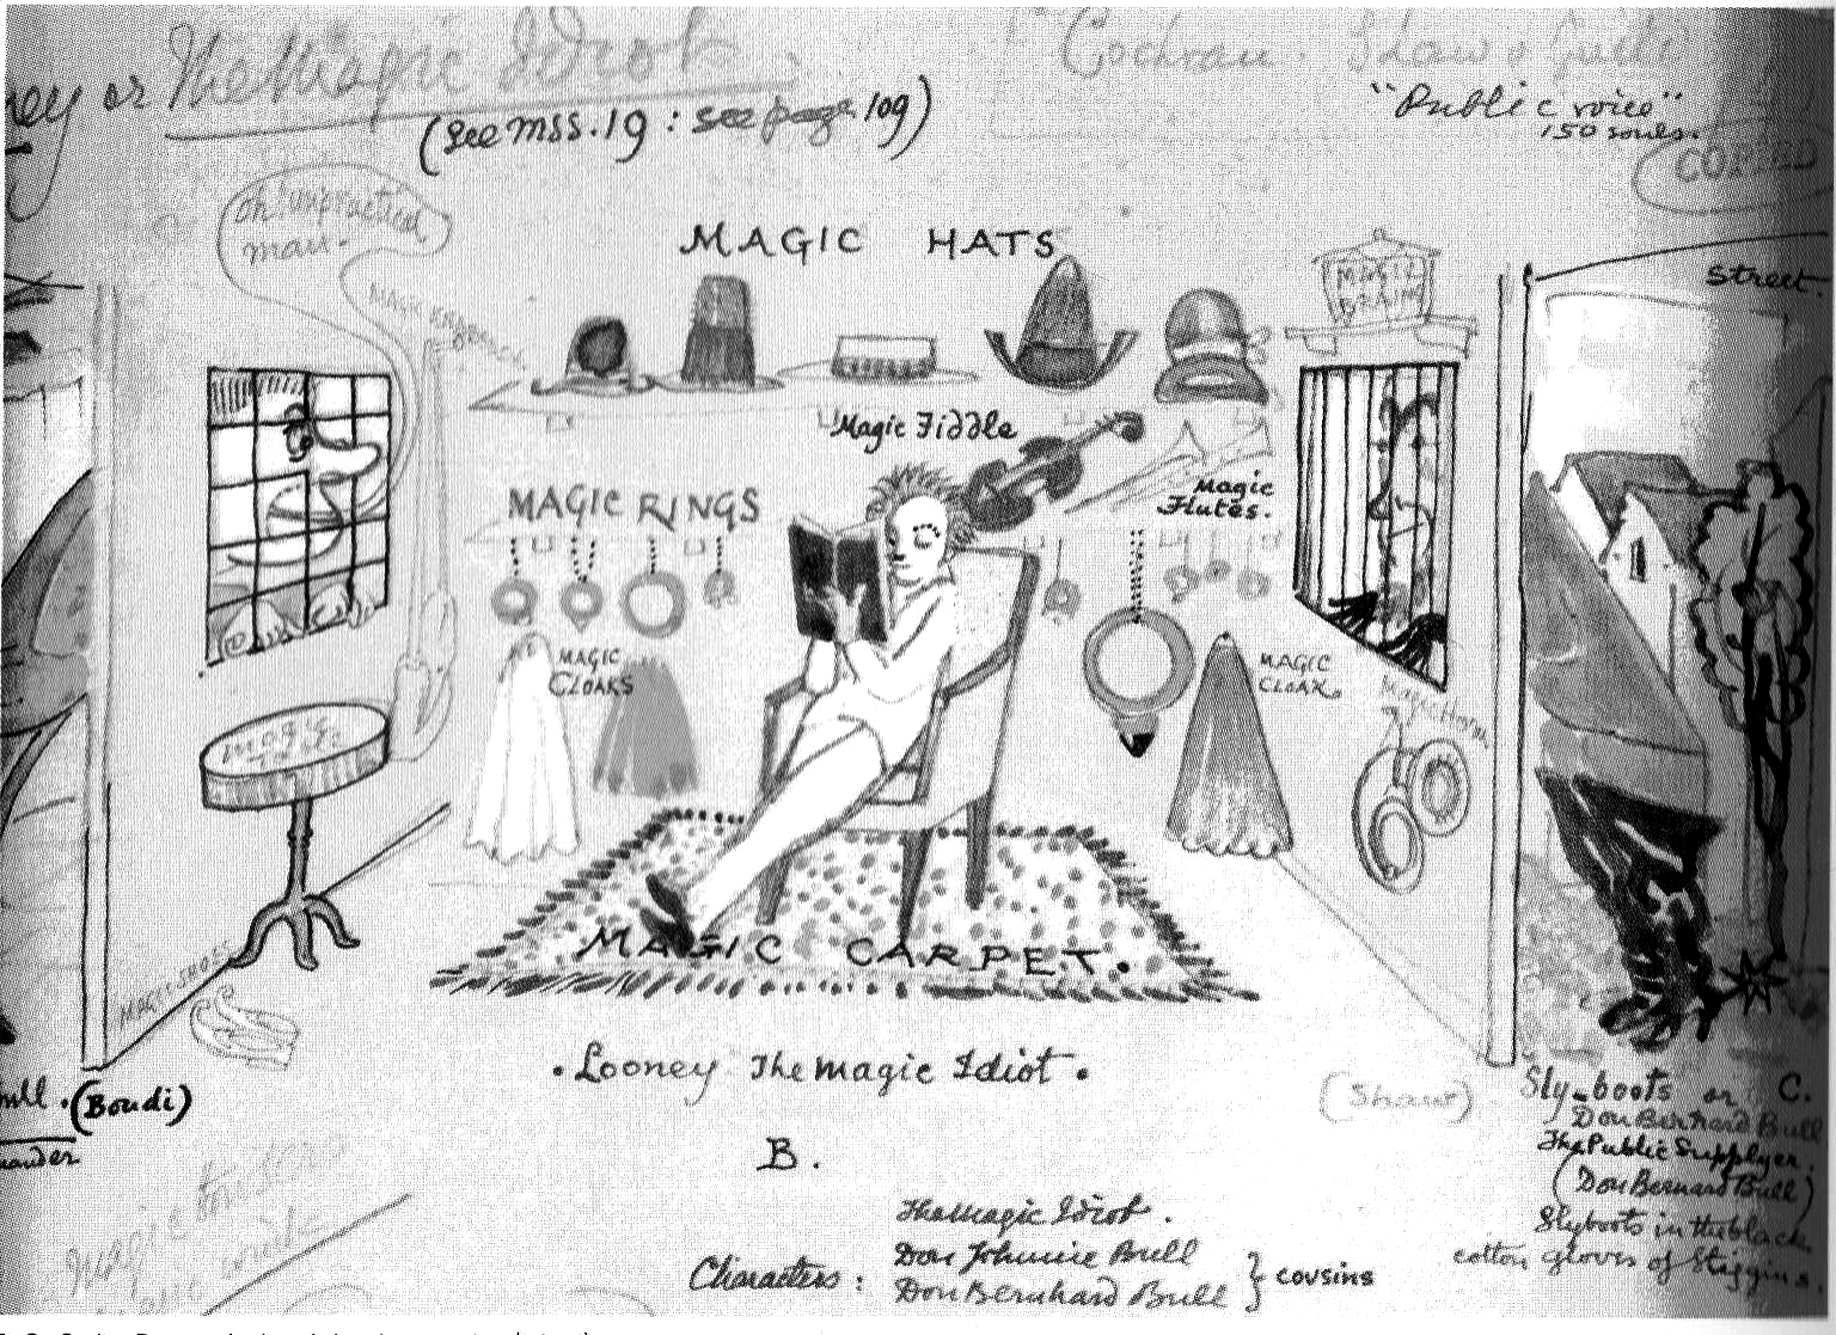 ney or The Magic Idiot.
Cochran. Shaw &
(See mss. 19 : see page 109)
"Public voice"
150 souls.
COPIED
Oh! unpractical
man.
MAGIC HATS
MAGIC
BRAIN
Street.
MAGIC
Magic Fiddle
Magic
Flutes.
MAGIC RINGS
MAGIC
CLOAKS
MAGIC
CLOAK.
Magic Horn
MAGIC
MAGIC SHOES
MAGIC CARPET.
. Looney The magic Idiot .
ull. (Boudi)
ander
(Shaw)
Sly-boots or C.
Don Bernard Bull
The Public Supplyer.
(Don Bernard Bull)
Slyboots in the black
cotton gloves of Stiggins.
B.
magic trousers
The magic Idiot.
Characters : Don Johnnie Bull
Don Bernhard Bull } cousins